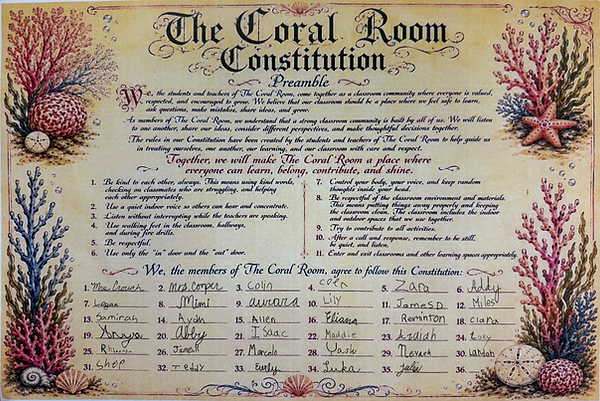 The Coral Room
Constitution
Preamble
We, the students and teachers of The Coral Room, come together as a classroom community where everyone is valued,
respected, and encouraged to grow. We believe that our classroom should be a place where we feel safe to learn,
ask questions, make mistakes, share ideas, and grow.
As members of The Coral Room, we understand that a strong classroom community is built by all of us. We will listen
to one another, share our ideas, consider different perspectives, and make thoughtful decisions together.
The rules in our Constitution have been created by the students and teachers of The Coral Room to help guide us
in treating ourselves, one another, our learning, and our classroom with care and respect.
Together, we will make The Coral Room a place where
everyone can learn, belong, contribute, and shine.
1. Be kind to each other, always. This means using kind words,
checking on classmates who are struggling, and helping
each other appropriately.
2. Use a quiet indoor voice so others can hear and concentrate.
3. Listen without interrupting while the teachers are speaking.
4. Use walking feet in the classroom, hallways,
and during fire drills.
5. Be respectful.
6. Use only the "in" door and the "out" door.
7. Control your body, your voice, and keep random
thoughts inside your head.
8. Be respectful of the classroom environment and materials.
This means putting things away properly and keeping
the classroom clean. The classroom includes the indoor
and outdoor spaces that we use together.
9. Try to contribute to all activities.
10. After a call and response, remember to be still,
be quiet, and listen.
11. Enter and exit classrooms and other learning spaces appropriately.
We, the members of The Coral Room, agree to follow this Constitution:
1. Mrs Crouch 2. Mrs Cooper 3. Colin 4. 5. Zara 6. Addy
7. Logan 8. Mimi 9. aurora 10. Lily 11. James D. 12. Miles
13. Samirah 14. Aydn 15. Allen 16. Eliana 17. Remington 18. Clara
19. Anaya 20. Abby 21. Isaac 22. Maddie 23. Azaiah 24.
25. 26. 27. Marcelo 28. Yash 29. Nevaeh 30. Landon
31. 32. Teddy 33. Everly 34. Luka 35. 36.